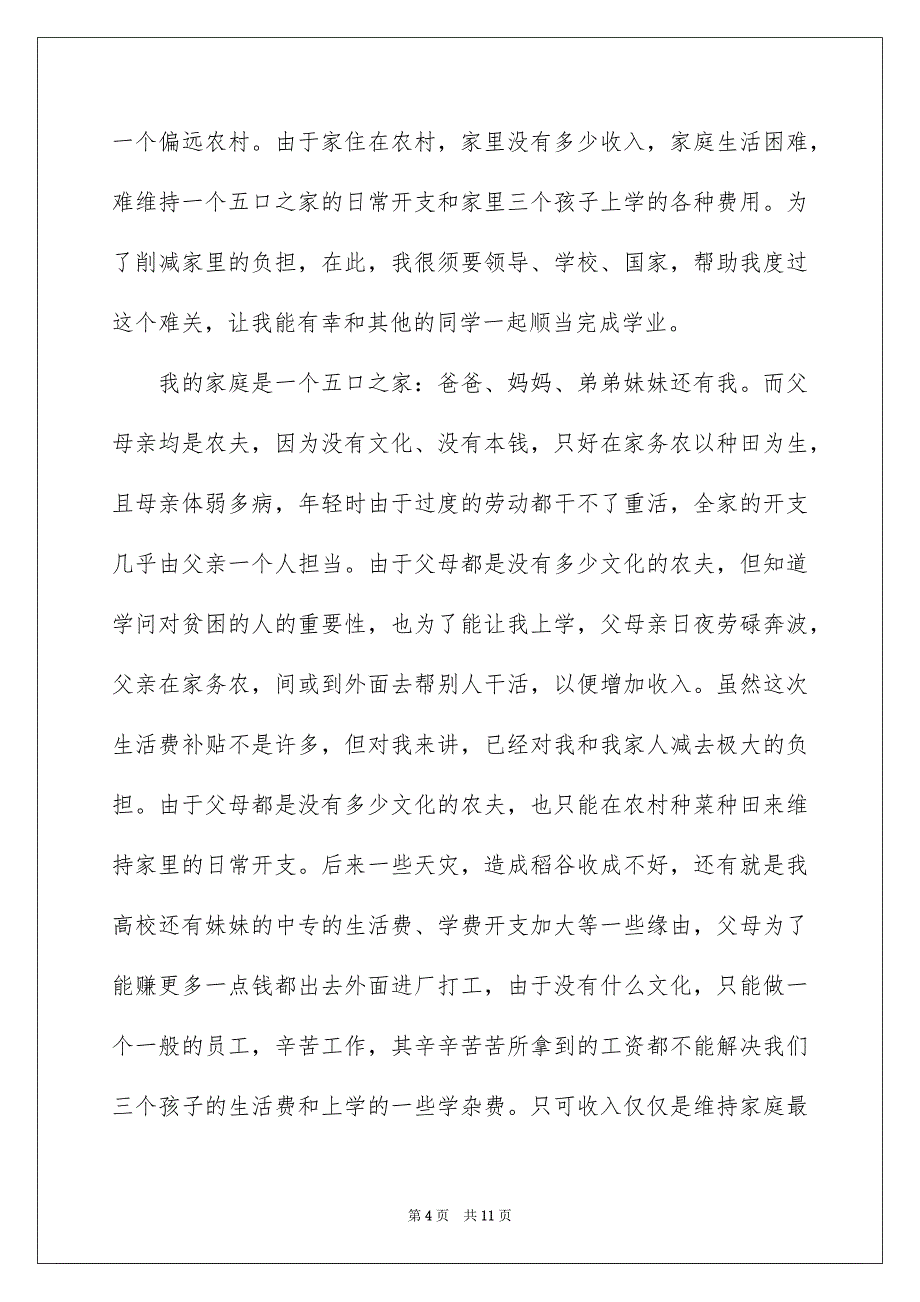 一个偏远农村。由于家住在农村，家里没有多少收入，家庭生活困难，
难维持一个五口之家的日常开支和家里三个孩子上学的各种费用。为
了削减家里的负担，在此，我很须要领导、学校、国家，帮助我度过
这个难关，让我能有幸和其他的同学一起顺当完成学业。
我的家庭是一个五口之家：爸爸、妈妈、弟弟妹妹还有我。而父
母亲均是农夫，因为没有文化、没有本钱，只好在家务农以种田为生，
且母亲体弱多病，年轻时由于过度的劳动都干不了重活，全家的开支
几乎由父亲一个人担当。由于父母都是没有多少文化的农夫，但知道
学问对贫困的人的重要性，也为了能让我上学，父母亲日夜劳碌奔波，
父亲在家务农，间或到外面去帮别人干活，以便增加收入。虽然这次
生活费补贴不是许多，但对我来讲，已经对我和我家人减去极大的负
担。由于父母都是没有多少文化的农夫，也只能在农村种菜种田来维
持家里的日常开支。后来一些天灾，造成稻谷收成不好，还有就是我
高校还有妹妹的中专的生活费、学费开支加大等一些缘由，父母为了
能赚更多一点钱都出去外面进厂打工，由于没有什么文化，只能做一
个一般的员工，辛苦工作，其辛辛苦苦所拿到的工资都不能解决我们
三个孩子的生活费和上学的一些学杂费。只可收入仅仅是维持家庭最
第 4 页 共 11 页